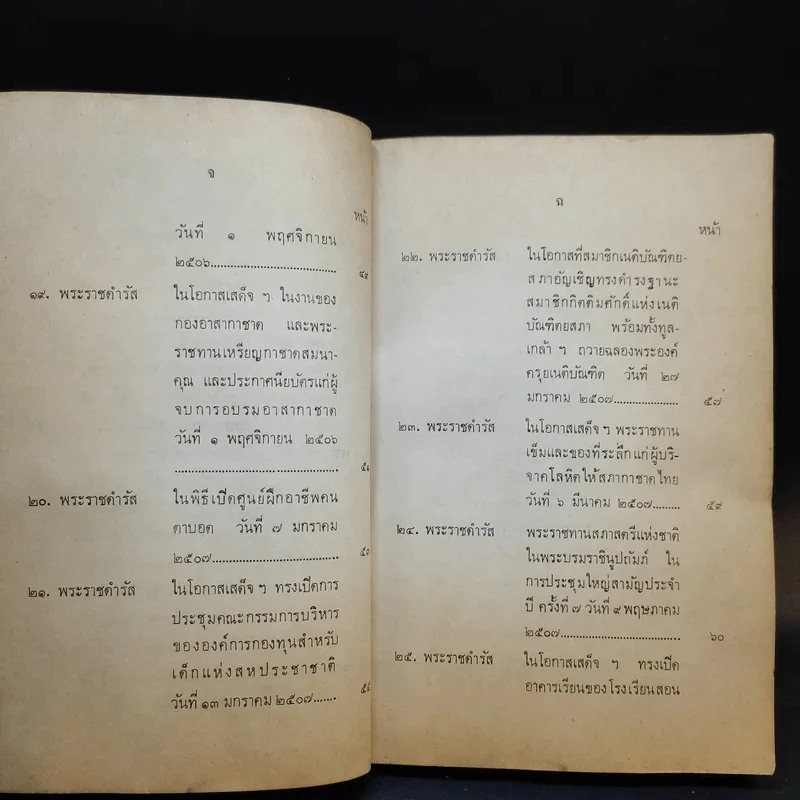 จ
หน้า
วันที่ ๑ พฤศจิกายน
๒๕๐๖.................................... ๔๙
๑๙. พระราชดำรัส ในโอกาสเสด็จ ฯ ในงานของ
กองอาสากาชาด และพระ-
ราชทานเหรียญกาชาดสมนา-
คุณ และประกาศนียบัตรแก่ผู้
จบการอบรมอาสากาชาด
วันที่ ๑ พฤศจิกายน ๒๕๐๖
..............................................
๒๐. พระราชดำรัส ในพิธีเปิดศูนย์ฝึกอาชีพคน
ตาบอด วันที่ ๗ มกราคม
๒๕๐๗....................................
๒๑. พระราชดำรัส ในโอกาสเสด็จ ฯ ทรงเปิดการ
ประชุมคณะกรรมการบริหาร
ขององค์การกองทุนสำหรับ
เด็กแห่งสหประชาชาติ
วันที่ ๑๓ มกราคม ๒๕๐๗.......
ฉ
หน้า
๒๒. พระราชดำรัส ในโอกาสที่สมาชิกเนติบัณฑิตย-
สภาอัญเชิญทรงดำรงฐานะ
สมาชิกกิตติมศักดิ์แห่งเนติ
บัณฑิตยสภา พร้อมทั้งทูล-
เกล้า ฯ ถวายฉลองพระองค์
ครุยเนติบัณฑิต วันที่ ๒๗
มกราคม ๒๕๐๗................... ๕๗
๒๓. พระราชดำรัส ในโอกาสเสด็จ ฯ พระราชทาน
เข็มและของที่ระลึกแก่ผู้บริ-
จาคโลหิตให้สภากาชาดไทย
วันที่ ๖ มีนาคม ๒๕๐๗......... ๕๙
๒๔. พระราชดำรัส พระราชทานสภาสตรีแห่งชาติ
ในพระบรมราชินูปถัมภ์ ใน
การประชุมใหญ่สามัญประจำ
ปี ครั้งที่ ๗ วันที่ ๙ พฤษภาคม
๒๕๐๗.................................. ๖๐
๒๕. พระราชดำรัส ในโอกาสเสด็จ ฯ ทรงเปิด
อาคารเรียนของโรงเรียนสอน